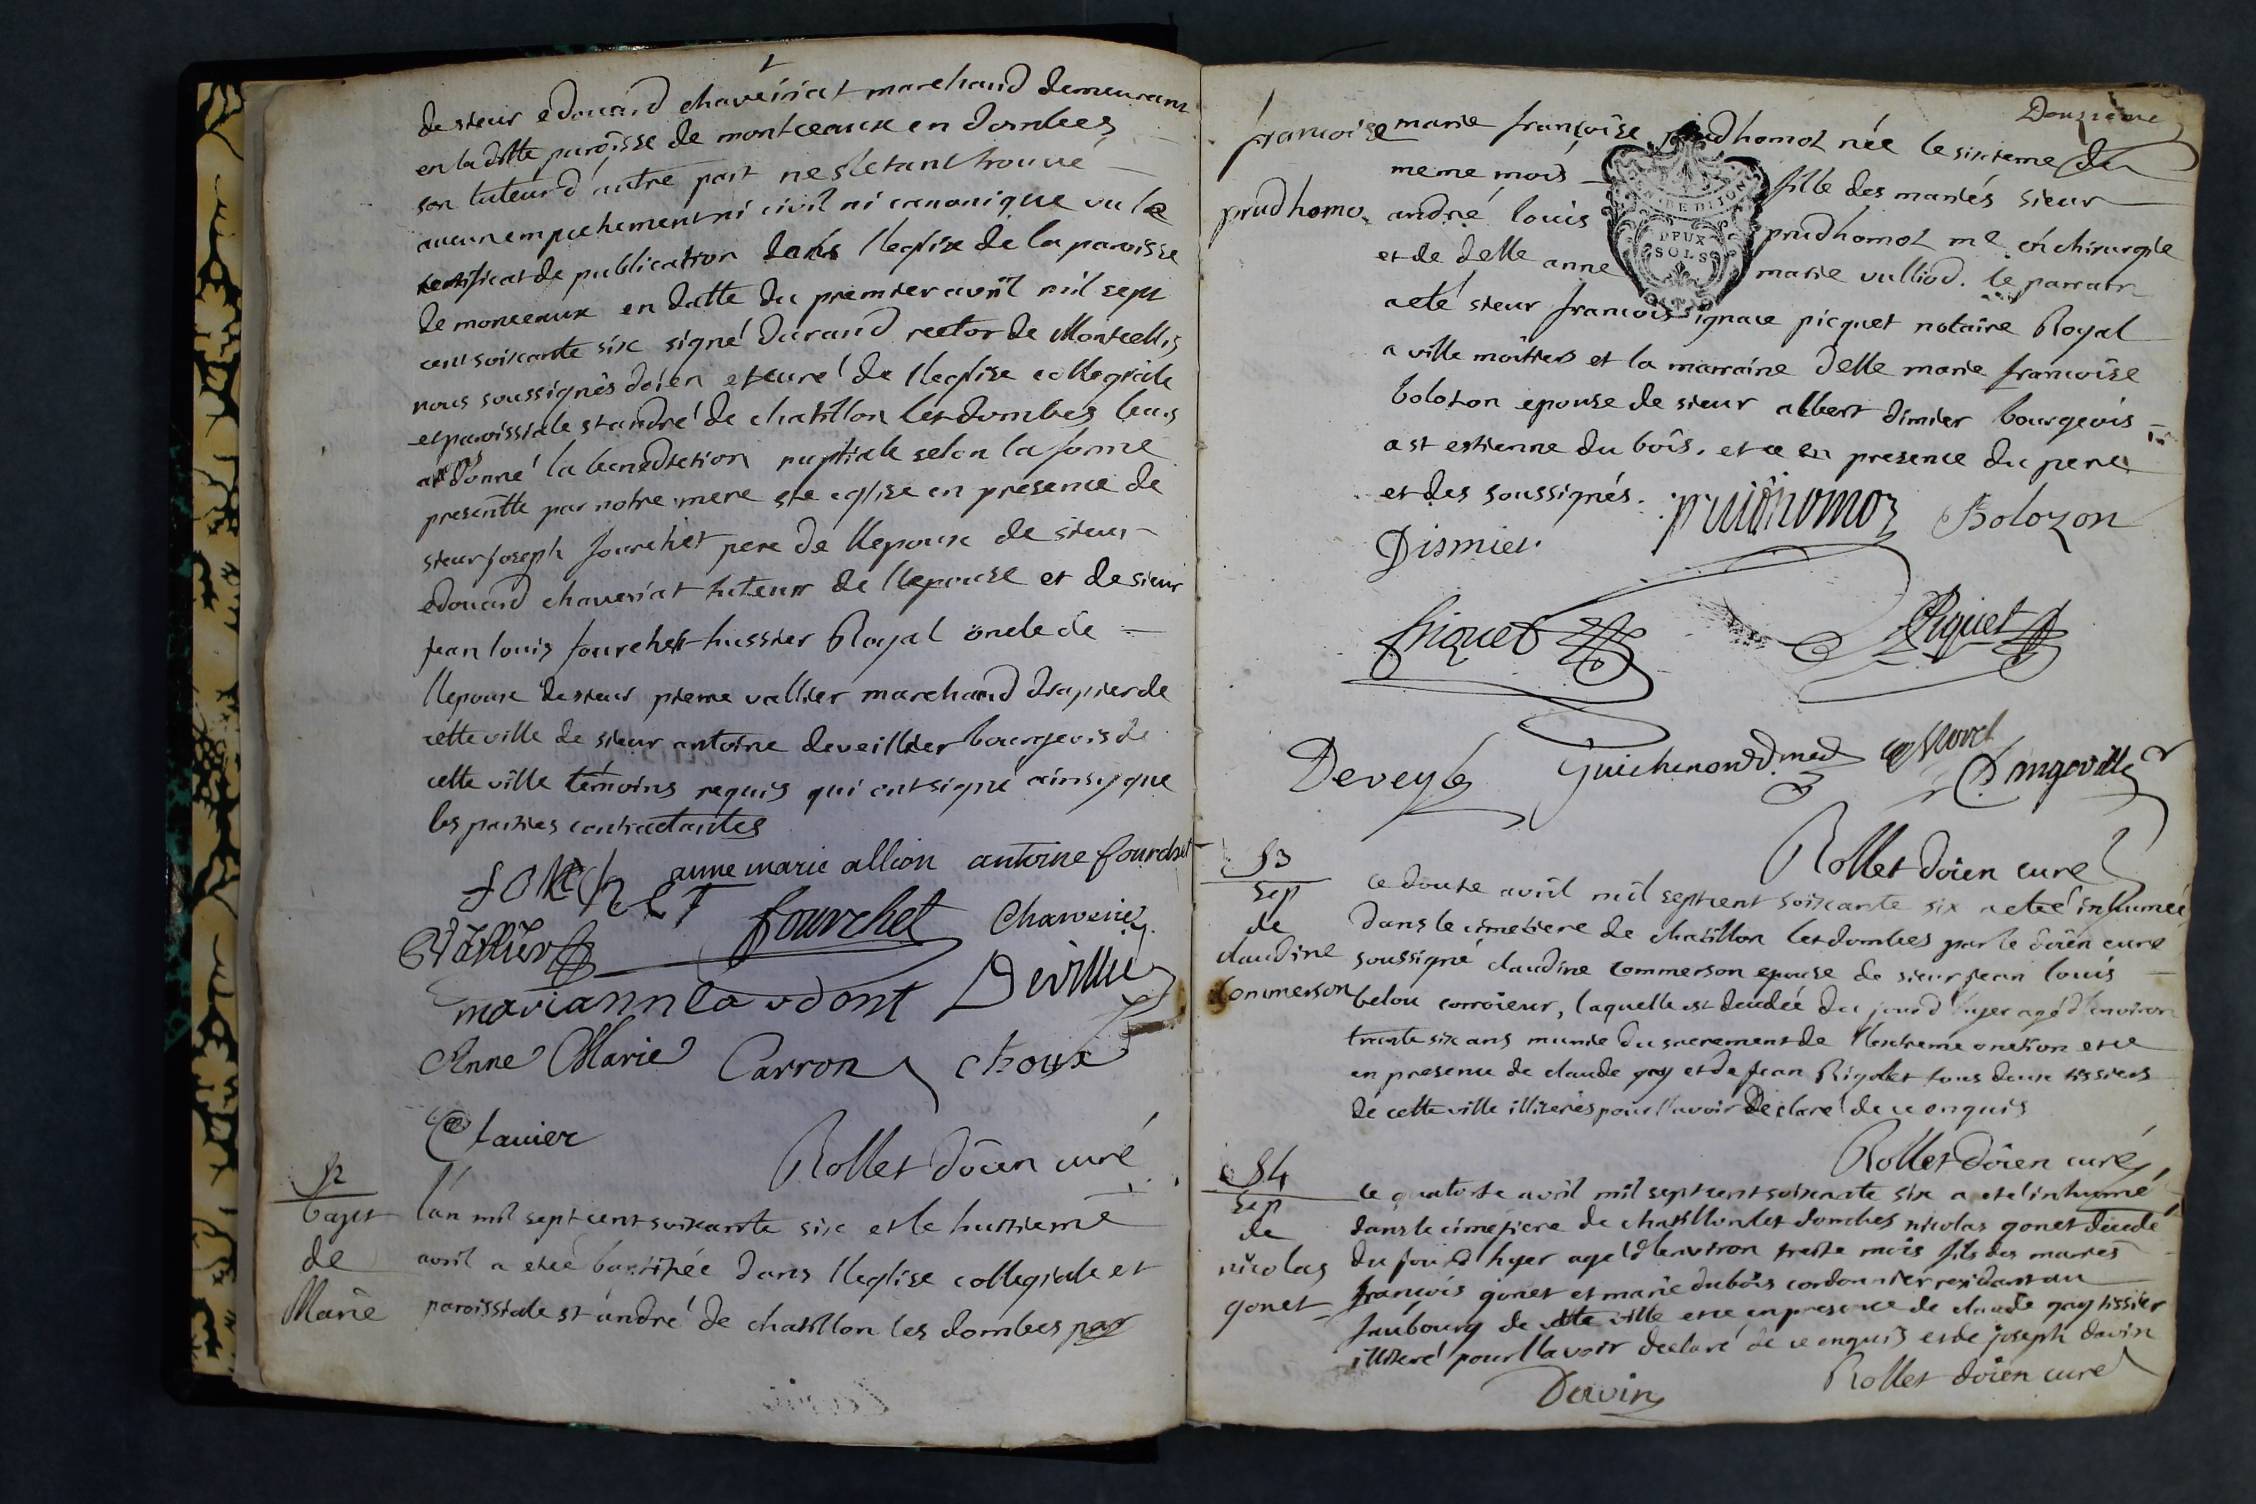 de sieur edouard chaveiriat marchand demeurant
en la ditte paroisse de montceaux en dombes
son tuteur d'autre part ne s'etant trouvé
aucun empechement ni civil ni canonique vu le
certificat de publication dans l'eglise de la paroisse
de monceaux en datte du premier avril mil sept
cent soixante six signé durand rector de Montcellis
nous soussignés doïen et curé de l'eglise collegiale
et paroissiale st andré de chatillon les dombes leurs
avons donné la benediction nuptiale selon la forme
presentte par notre mere ste eglise en presence de
sieur joseph fourchet pere de l'epoux de sieur
edouard chaveriat tuteur de l'epouse et de sieur
jean louis fourchet huissier Royal oncle de
l'epoux de sieur pierre vallier marchand drapier de
cette ville de sieur antoine deveillier bourgeois de
cette ville témoins requis qui ont signé ainsy que
les parties contractantes
fourchet anne marie allion antoine fourchet
Vallier fourchet
Devillie
Anne Marie Carron choux
Clavier
Rollet doïen curé
52
bapt
de
Marie
l'an mil sept cent soixante six et le huitieme
avril a eté baptisée dans l'eglise collegiale et
paroissiale st andré de chatillon les dombes par
Douzieme
francoise
prudhomo
marie françoise prudhomoz née le sixieme du
meme mois fille des mariés sieur
andré louis prudhomoz me en chirurgie
et de delle anne marie vulliod. le parrain
a eté sieur francois ignace picquet notaire Royal
a ville moîtiers et la marraine delle marie francoise
bolozon epouse de sieur albert dimier bourgeois
a st estienne du bois. et ce en presence du pere
et des soussignés. prudhomoz Bolozon
Dismier
Piquet
Deveyle Guichenon D. med Dangeville
DE DIJON
DEUX
SOLS
Rollet doïen curé
53
sep
de
claudine
Commerson
ce douze avril mil sept cent soixante six a eté inhumée
dans le cimetiere de chatillon les dombes par le doïen curé
soussigné claudine commerson epouse de sieur jean louis
belou corroïeur, laquelle est decedée du jour d'hyer agé d'environ
trente six ans munie du sacrement de l'extreme onction et ce
en presence de claude gay et de jean Rigolet tous deux tissiers
de cette ville illiterés pour l'avoir declaré de ce enquis
Rollet doïen curé
54
sep
de
nicolas
gonet
ce quatorze avril mil sept cent soixante six a eté inhumé
dans le cimetiere de chatillon les dombes nicolas gonet decedé
du jour d'hyer agé d'environ treize mois fils des mariés
françois gonet et marie dubois cordonnier residant au
faubourg de cette ville et ce en presence de claude gay tissier
illiteré pour l'avoir declaré de ce enquis et de joseph davin
Davin Rollet doïen curé